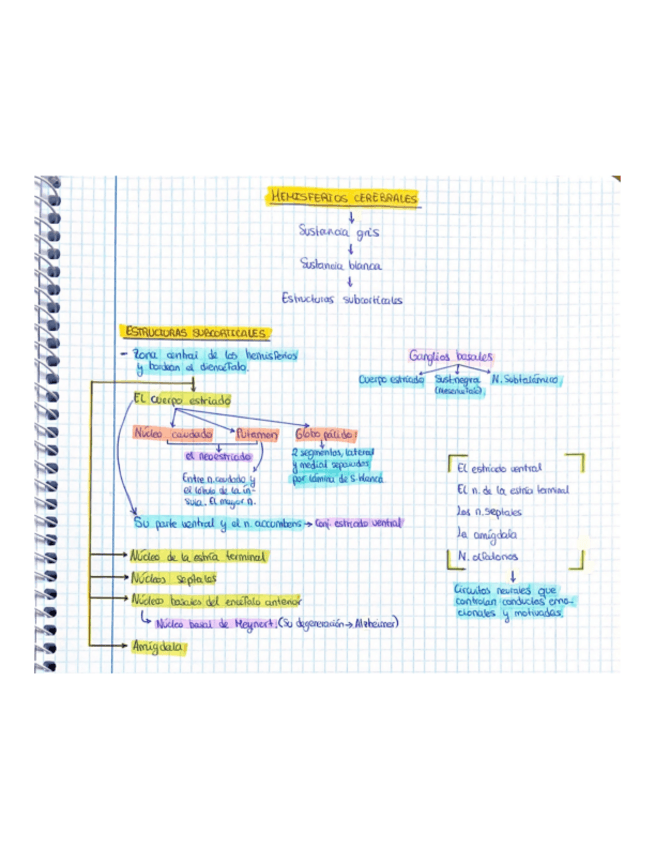 HEMISFERIOS CEREBRALES
Sustancia gris
Sustancia blanca
Estructuras subcorticales
ESTRUCTURAS SUBCORTICALES
- Zona central de los hemisferios
y bordean el diencéfalo.
Ganglios basales
Cuerpo estriado Sust. negra N. Subtalámico
(Mesencéfalo)
El cuerpo estriado
Núcleo caudado Putamen Globo pálido
el neoestriado
2 segmentos, lateral
y medial separados
por lámina de s. blanca
Entre n. caudado y
el lóbulo de la ín-
sula. El mayor n.
Su parte ventral y el n. accumbens → Conj. estriado ventral
El estriado ventral
El n. de la estría terminal
Los n. septales
la amígdala
N. olfatorios
Circuitos neurales que
controlan conductas emo-
cionales y motivadas
Núcleo de la estría terminal
Núcleos septales
Núcleos basales del encéfalo anterior
Núcleo basal de Meynert. (Su degeneración → Alzheimer)
Amígdala